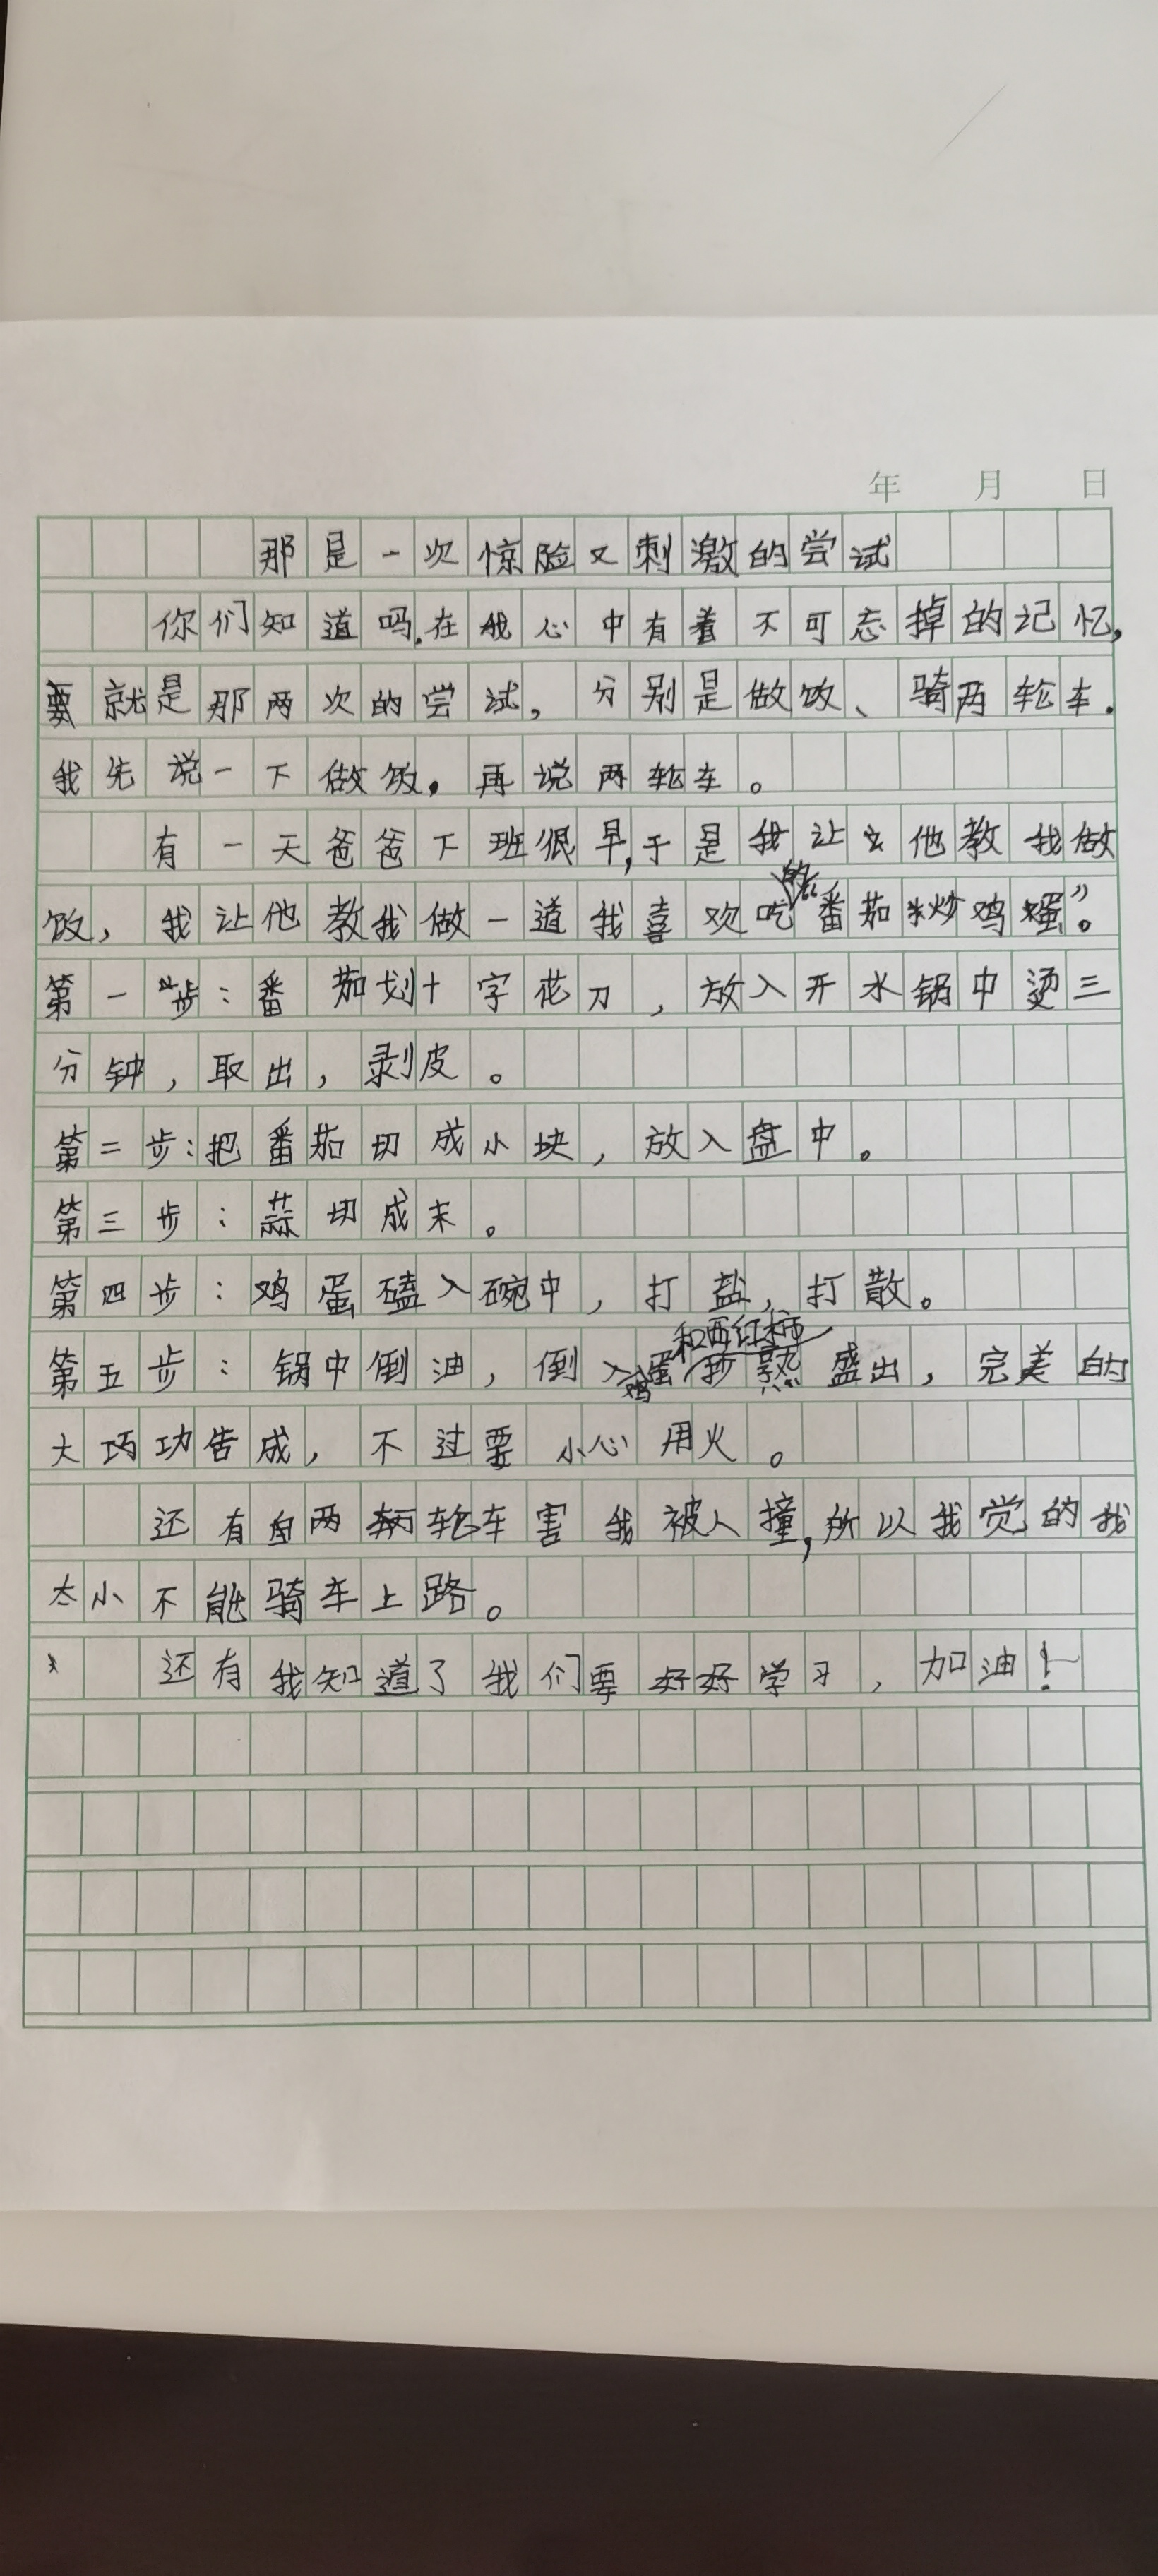 年 月 日
那是一次惊险又刺激的尝试
你们知道吗,在我心中有着不可忘掉的记忆,
就是那两次的尝试,分别是做饭、骑两轮车.
我先说一下做饭,再说两轮车。
有一天爸爸下班很早,于是我让他教我做
饭,我让他教我做一道我喜欢吃的“番茄炒鸡蛋”。
第一步:番茄划十字花刀,放入开水锅中烫三
分钟,取出,剥皮。
第二步:把番茄切成小块,放入盘中。
第三步:蒜切成末。
第四步:鸡蛋磕入碗中,打盐,打散。
第五步:锅中倒油,倒入鸡蛋和西红柿炒熟盛出,完美的
大功告成,不过要小心用火。
还有两轮车害我被人撞,所以我觉的我
太小不能骑车上路。
还有我知道了我们要好好学习,加油!